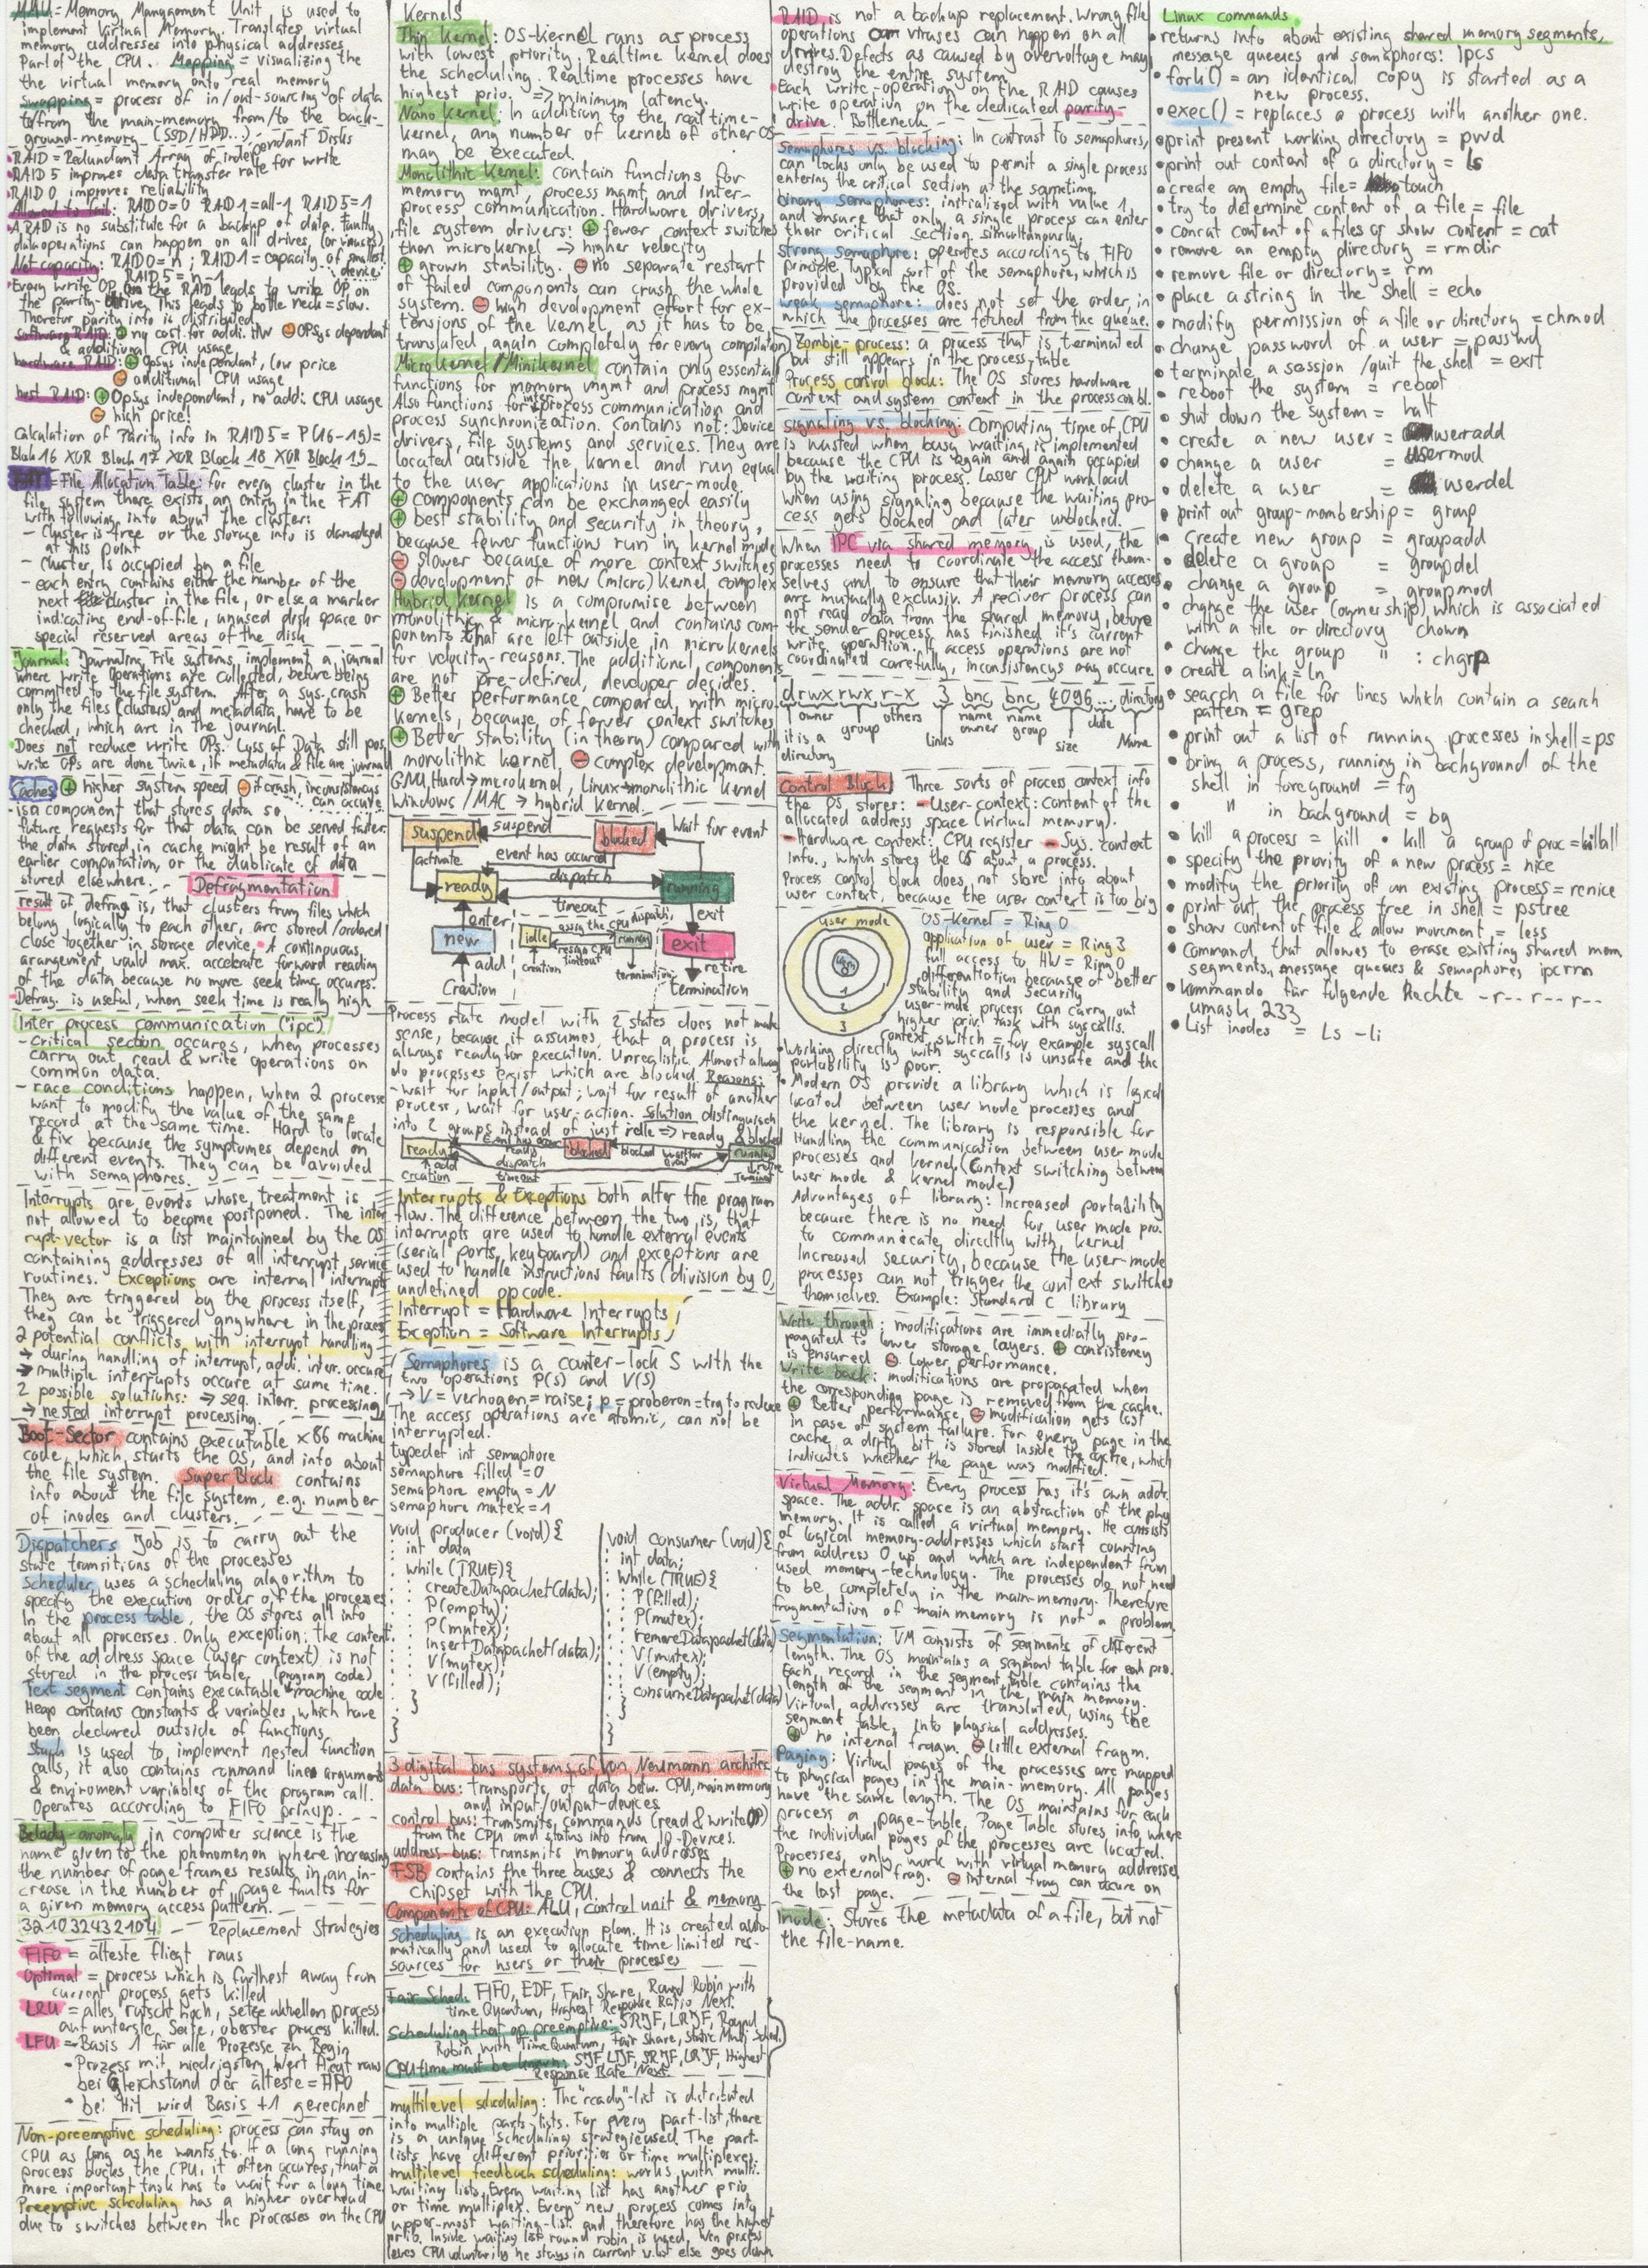 MMU = Memory Management Unit is used to
implement Virtual Memory. Translates virtual
memory addresses into physical addresses.
Part of the CPU. Mapping = visualizing the
the virtual memory onto real memory
Swapping = process of in/out-sourcing of data
to/from the main-memory from/to the back-
ground-memory (SSD/HDD...)
RAID = Redundant Array of independant Disks
RAID 5 improves data transfer rate for write
RAID 0 improves reliability
Allowed to fail: RAID0=0 RAID1=all-1 RAID5=1
A RAID is no substitute for a backup of data. Faulty
data operations can happen on all drives, (or viruses)
Net capacity: RAID0=n; RAID1=capacity of smallest device
RAID5=n-1
Every write OP on the RAID leads to write OP on
the parity-drive. This leads to bottle neck = slow.
Therefor parity info is distributed
software RAID: + no cost for addi. HW - OPSys dependant
& additional CPU usage
hardware RAID: + Opsys independant, low price
- additional CPU usage
host RAID: + Opsys independant, no addi. CPU usage
- high price!
Calculation of Parity info in RAID5 = P(16-19)=
Block 16 XOR Block 17 XOR Block 18 XOR Block 19
FAT = File Allocation Table: for every cluster in the
file system there exists an entry in the FAT
with following info about the cluster:
- Cluster is free or the storage info is damaged
at this point
- Cluster is occupied by a file
- each entry contains either the number of the
next cluster in the file, or else a marker
indicating end-of-file, unused disk space or
special reserved areas of the disk
Journal: Journaling File systems, implement a journal
where write Operations are collected, before being
commited to the file system. After a sys. crash
only the files (clusters) and metadata have to be
checked, which are in the journal.
Does not reduce write OPs. Loss of Data still pos
write OPs are done twice, if metadata & file are journal
Caches + higher system speed - if crash, inconsistencys
can occure
- is a component that stores data so
future requests for that data can be served faster.
the data stored in cache might be result of an
earlier computation, or the dublicate of data
stored elsewhere.
Defragmentation
result of defrag is, that clusters from files which
belong logically to each other, are stored/ordered
close together in storage device. A continuous
arangement would max. accelerate forward reading
of the data because no more seek time occures.
Defrag. is useful, when seek time is really high
Inter process communication ("ipc")
- critical section occures, when processes
carry out read & write operations on
common data.
- race conditions happen, when 2 processe
want to modify the value of the same
record at the same time. Hard to locate
& fix because the symptomes depend on
different events. They can be avoided
with semaphores.
Interrupts are events whose treatment is
not allowed to become postponed. The inter
rupt-vector is a list maintained by the OS
containing addresses of all interrupt service
routines. Exceptions are internal interrupts
They are triggered by the process itself,
they can be triggered anywhere in the process
2 potential conflicts with interrupt handling
→ during handling of interrupt, addi. inter. occure
→ multiple interrupts occure at same time.
2 possible solutions: → seq. interr. processing
→ nested interrupt processing.
Boot-Sector contains executable x86 machine
code, which starts the OS, and info about
the file system. Super Block contains
info about the file system, e.g. number
of inodes and clusters.
Dispatchers Job is to carry out the
state transitions of the processes
Scheduler uses a scheduling algorithm to
specify the execution order of the processes
In the process table, the OS stores all info
about all processes. Only exception: the content
of the address space (user context) is not
stored in the process table. (program code)
Text segment contains executable machine code
Heap contains constants & variables, which have
been declared outside of functions.
Stack is used to implement nested function
calls, it also contains command line arguments
& enviroment variables of the program call.
Operates according to FIFO princip.
Belady-anomaly in computer science is the
name given to the phenomenon where increasing
the number of page frames results in an in-
crease in the number of page faults for
a given memory access pattern.
321032432104 Replacement Strategies
FIFO = älteste fliegt raus
Optimal = process which is furthest away from
current process, gets killed
LRU = alles rutscht hoch, setze aktuellen process
auf unterste Seite, oberster process killed.
LFU = Basis 1 für alle Prozesse zu Begin
• Prozess mit niedrigstem Wert fliegt raus
bei Gleichstand der älteste = FIFO
• bei Hit wird Basis +1 gerechnet
Non-preemptive scheduling: process can stay on
CPU as long as he wants to. If a long running
process blocks the CPU, it often occures, that a
more important task has to wait for a long time
Preemptive scheduling has a higher overhead
due to switches between the processes on the CPU
Kernels
Thin Kernel: OS-kernel runs as process
with lowest priority. Realtime kernel does
the scheduling. Realtime processes have
highest prio. => minimum latency.
Nano Kernel: In addition to the real time-
kernel, any number of kernels of other OS
may be executed.
Monolithic Kernel: contain functions for
memory mgmt, process mgmt and inter-
process communication. Hardware drivers,
file system drivers: + fewer context switches
than microkernel → higher velocity
+ grown stability. - no separate restart
of failed components can crash the whole
system. - high development effort for ex-
tensions of the kernel, as it has to be
translated again completely for every compilation
Microkernel/Minikernel contain only essential
functions for memory mgmt and process mgmt
Also functions for inter process communication and
process synchronization. Contains not: Device
drivers, file systems and services. They are
located outside the kernel and run equal
to the user applications in user-mode.
+ components can be exchanged easily
+ best stability and security in theory,
because fewer functions run in kernel mode
- slower because of more context switches
- development of new (micro) kernel complex
Hybrid kernel is a compromise between
monolithic & micro-kernel and contains com-
ponents that are left outside in microkernels
for velocity-reasons. The additional components
are not pre-defined, developer decides.
+ Better performance compared with micro-
kernels, because of fewer context switches
+ Better stability (in theory) compared with
monolithic kernel. - complex development.
GNU Hurd → microkernel, Linux → monolithic kernel
Windows/MAC → hybrid kernel.
suspend suspend blocked Wait for event
activate event has occured
ready dispatch running
timeout
enter exit
new idle assign the CPU running dispatch exit
resign CPU
timeout
add creation termination retire
Creation termination
Process state model with 2 states does not make
sense, because it assumes, that a process is
always ready for execution. Unrealistic. Almost always
do processes exist which are blocked. Reasons:
- wait for input/output; wait for result of another
process, wait for user-action. Solution distinguisch
into 2 groups instead of just idle => ready & blocked
ready Event has occured blocked blocked wait for event running
ready
add dispatch retire
creation timeout Terminat
Interrupts & Exceptions both alter the program
flow. The difference between the two is, that
interrupts are used to handle external events
(serial ports, keyboard) and exceptions are
used to handle instructions faults (division by 0,
undefined opcode.
Interrupt = Hardware Interrupts
Exception = Software Interrupts
Semaphores is a counter-lock S with the
two operations P(s) and V(S)
→ V = verhogen = raise; p = proberen = try to reduce
The access operations are atomic, can not be
interrupted.
typedef int semaphore
semaphore filled = 0
semaphore empty = N
semaphore mutex = 1
void producer (void) {
int data
while (TRUE) {
createDatapacket(data);
P(empty);
P(mutex);
insertDatapacket(data);
V(mutex);
V(filled);
}
}
void consumer (void) {
int data;
while (TRUE) {
P(filled);
P(mutex);
removeDatapacket(data)
V(mutex);
V(empty);
consumeDatapacket(data)
}
}
3 digital bus systems of Von Neumann architec
data bus: transports of data betw. CPU, main memory
and input/output-devices
control bus: transmits commands (read & write OP)
from the CPU and status info from IO-Devices.
address-bus: transmits memory addresses
FSB contains the three busses & connects the
chipset with the CPU.
Components of CPU: ALU, control unit & memory
Scheduling is an execution plan. It is created auto-
matically and used to allocate time limited res-
sources for users or their processes
Fair Sched: FIFO, EDF, Fair Share, Round Robin with
time Quantum, Highest Response Ratio Next.
Scheduling that op preemptive: SRJF, LRJF, Round
Robin with Time Quantum, Fair share, Static Multi Sched.
CPU time must be known: SJF, LJF, SRJF, LRJF, Highest
Response Rate Next
multilevel scheduling: The "ready"-list is distributed
into multiple parts lists. For every part-list, there
is a unique scheduling strategie used. The part-
lists have different priorities or time multiplexes.
multilevel feedback scheduling: works with multi.
waiting lists. Every waiting list has another prio
or time multiplex. Every new process comes into
upper-most waiting-list and therefore has the highest
prio. Inside waiting list round robin is used. Wen process
leaves CPU voluntarily he stays in current w.list else goes down
RAID is not a backup replacement. Wrong file
operations or viruses can happen on all
drives. Defects as caused by overvoltage may
destroy the entire system.
Each write-operation on the RAID causes
write operation on the dedicated parity-
drive. Bottleneck
Semaphores vs. blocking: In contrast to semaphores,
can locks only be used to permit a single process
entering the critical section at the sametime.
binary semaphores: initialized with value 1,
and ensure that only a single process can enter
their critical section simultaneously.
strong semaphore: operates according to FIFO
principle. Typical sort of the semaphore, which is
provided by the OS.
weak semaphore: does not set the order, in
which the processes are fetched from the queue.
Zombie-process: a process that is terminated
but still appears in the process-table
Process control block: The OS stores hardware
context and system context in the process con. bl.
signaling vs. blocking: Computing time of CPU
is wasted when busy waiting is implemented
because the CPU is again and again occupied
by the waiting process. Lesser CPU workload
when using signaling because the waiting pro-
cess gets blocked and later unblocked.
When IPC via shared memory is used, the
processes need to coordinate the access them-
selves and to ensure that their memory accesses
are mutually exclusiv. A reciver process can
not read data from the shared memory, before
the sender process has finished it's current
write operation. If access operations are not
coordinated carefully, inconsistencys may occure
drwx rwx r-x 3 bnc bnc 4096 ... directory
owner others name name date
it is a group links owner group size Name
directory
Control Block: Three sorts of process context info
the OS stores: - User-context: content of the
allocated address space (virtual memory).
- Hardware context: CPU register - Sys. context
Info., which stores the OS about a process.
Process control block does not store info about
user context, because the user context is too big
user mode
1
2
3
OS-Kernel = Ring 0
application of user = Ring 3
full access to HW = Ring 0
differentiation because of better
stability and security
user-mode process can carry out
higher priv. task with syscalls.
Context switch = for example syscall
Working directly with syscalls is unsafe and the
portability is poor.
Modern OS provide a library which is logical
located between user mode processes and
the kernel. The library is responsible for
Handling the communication between user mode
processes and kernel (Context switching between
user mode & kernel mode)
Advantages of library: Increased portability
because there is no need for user mode pro.
to communicate directly with kernel
Increased security, because the user-mode
processes can not trigger the context switches
themselves. Example: Standard C library
Write through: modifications are immediatly pro-
pagated to lower storage layers. + consistency
is ensured - Lower performance.
Write back: modifications are propagated when
the corresponding page is removed from the cache.
+ Better performance - modification gets lost
in case of system failure. For every page in the
cache, a dirty bit is stored inside the cache, which
indicates whether the page was modified.
Virtual Memory: Every process has it's own addr.
space. The addr. space is an abstraction of the phy
memory. It is called a virtual memory. He consists
of logical memory-addresses which start counting
from address 0 up and which are independent from
used memory-technology. The processes do not need
to be completely in the main-memory. Therefore
fragmentation of main memory is not a problem.
Segmentation: VM consists of segments of different
length. The OS maintains a segment table for each pro.
Each record in the segment table contains the
length of the segment in the main memory.
Virtual addresses are translated, using the
segment table, into physical addresses.
+ no internal fragm. - little external fragm.
Paging: Virtual pages of the processes are mapped
to physical pages in the main-memory. All pages
have the same length. The OS maintains for each
process a page-table. Page Table stores info, where
the individual pages of the processes are located.
Processes, only work with virtual memory addresses
+ no external frag. - internal frag can occure on
the last page.
Inode: Stores the metadata of a file, but not
the file-name.
Linux commands
• returns info about existing shared memory segments,
message queues and semaphores: ipcs
• fork() = an identical copy is started as a
new process.
• exec() = replaces a process with another one.
• print present working directory = pwd
• print out content of a directory = ls
• create an empty file = touch
• try to determine content of a file = file
• concat content of a files or show content = cat
• remove an empty directory = rmdir
• remove file or directory = rm
• place a string in the shell = echo
• modify permission of a file or directory = chmod
• change password of a user = passwd
• terminate a session /quit the shell = exit
• reboot the system = reboot
• shut down the system = halt
• create a new user = useradd
• change a user = usermod
• delete a user = userdel
• print out group-membership = group
• create new group = groupadd
• delete a group = groupdel
• change a group = groupmod
• change the user (ownership) which is associated
with a file or directory chown
• change the group " : chgrp
• create a link = ln
• search a file for lines which contain a search
pattern = grep
• print out a list of running processes in shell = ps
• bring a process, running in background of the
shell in foreground = fg
• " in background = bg
• kill a process = kill • kill a group of proc = killall
• specify the prority of a new process = nice
• modify the priority of an existing process = renice
• print out the process tree in shell = pstree
• show content of file & allow movement = less
• Command, that allowes to erase existing shared mem
segments, message queues & semaphores, ipcrm
• Kommando für folgende Rechte -r-- r-- r--
umask 233
• List inodes = Ls -li